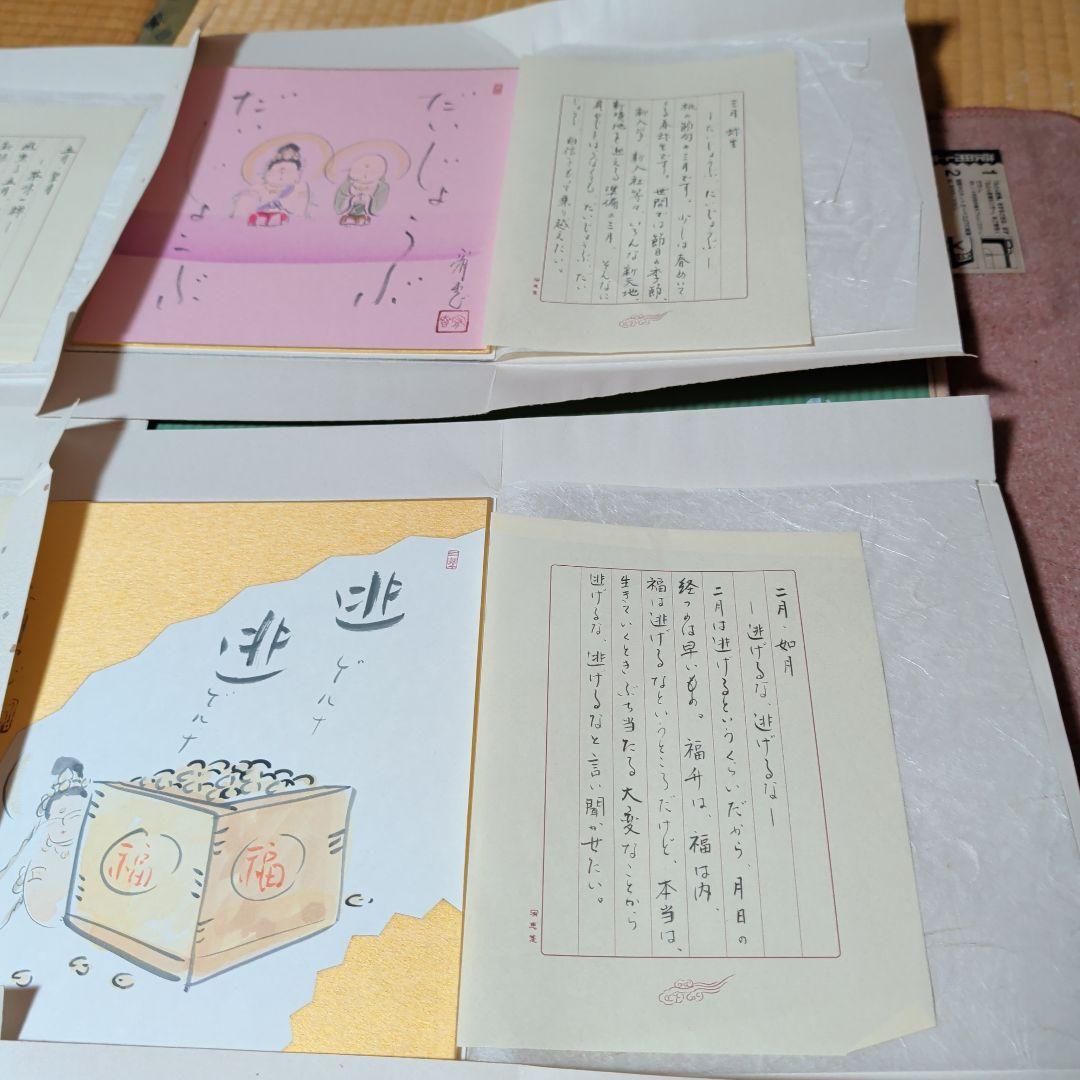 だいじょうぶ
だいじょうぶ
三月 弥生
―だいじょうぶ、だいじょうぶ―
桃の節句の三月です。少しは春めいて
くる春弥生です。世間では節目の季節、
新入学、新入社等々、いろんな新天地、
新境地を迎える準備の三月、そんなに
だいじょうぶ、だい
じょうぶ 自信をもって乗り越えたい。
五月
逃ゲルナ
逃ゲルナ
福
福
二月・如月
―逃げるな、逃げるな―
二月は逃げるというくらいだから、月日の
経つのは早いもの。福升は、福は内、
福は逃げるなというところだけど、本当は、
生きていくときぶち当たる大変なことから
逃げるな、逃げるなと言い聞かせたい。
1
2